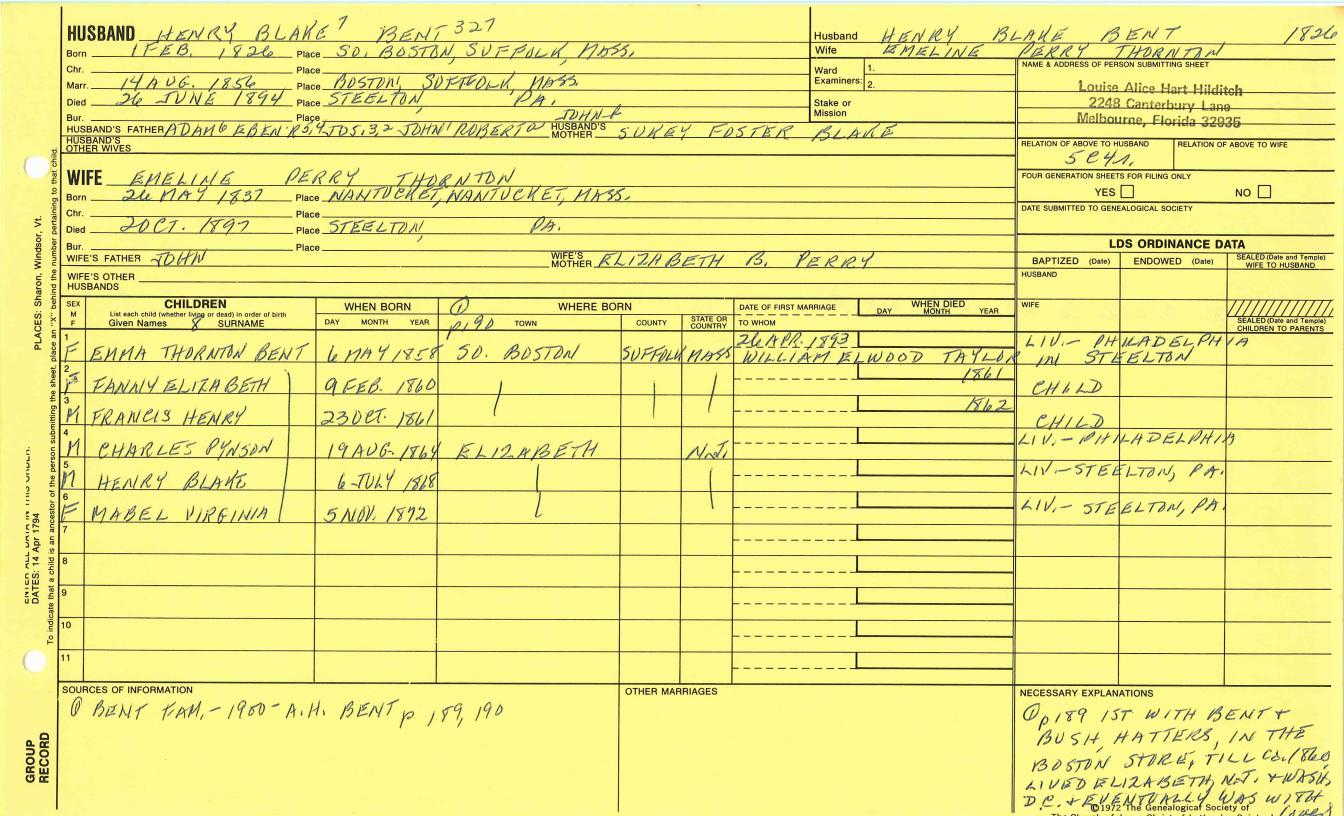 HUSBAND HENRY BLAKE 7 BENT 327
Born 1 FEB. 1826 Place SO. BOSTON, SUFFOLK, MASS.
Chr. Place
Marr. 14 AUG. 1856 Place BOSTON, SUFFOLK, MASS.
Died 26 JUNE 1894 Place STEELTON, PA.
Bur. Place
HUSBAND'S FATHER ADAM 6 EBEN'R 5,4 JOS. 3,2 JOHN 1 ROBERT HUSBAND'S MOTHER SUKEY FOSTER BLAKE
JOHN
HUSBAND'S OTHER WIVES
WIFE EMELINE PERRY THORNTON
Born 26 MAY 1837 Place NANTUCKET, NANTUCKET, MASS.
Chr. Place
Died 2 OCT. 1897 Place STEELTON, PA.
Bur. Place
WIFE'S FATHER JOHN WIFE'S MOTHER ELIZABETH B. PERRY
WIFE'S OTHER HUSBANDS
Husband HENRY BLAKE BENT 1826
Wife EMELINE PERRY THORNTON
Ward Examiners: 1. 2.
Stake or Mission
NAME & ADDRESS OF PERSON SUBMITTING SHEET
Louise Alice Hart Hilditch
2248 Canterbury Lane
Melbourne, Florida 32935
RELATION OF ABOVE TO HUSBAND RELATION OF ABOVE TO WIFE
5C4r.
FOUR GENERATION SHEETS FOR FILING ONLY
YES NO
DATE SUBMITTED TO GENEALOGICAL SOCIETY
LDS ORDINANCE DATA
BAPTIZED (Date) ENDOWED (Date) SEALED (Date and Temple) WIFE TO HUSBAND
HUSBAND
WIFE
SEALED (Date and Temple) CHILDREN TO PARENTS
SEX M F CHILDREN WHEN BORN ① WHERE BORN DATE OF FIRST MARRIAGE WHEN DIED
List each child (whether living or dead) in order of birth
Given Names 8 SURNAME DAY MONTH YEAR p190 TOWN COUNTY STATE OR COUNTRY TO WHOM DAY MONTH YEAR
1 26 APR. 1893 LIV.- PHILADELPHIA
F EMMA THORNTON BENT 6 MAY 1858 SO. BOSTON SUFFOLK MASS WILLIAM ELWOOD TAYLOR IN STEELTON
2 F FANNY ELIZABETH 9 FEB. 1860 1861 CHILD
3 M FRANCIS HENRY 23 OCT. 1861 1862 CHILD
4 M CHARLES PYNSON 19 AUG. 1864 ELIZABETH N.J. LIV.- PHILADELPHIA
5 M HENRY BLAKE 6 JULY 1868 LIV-STEELTON, PA.
6 F MABEL VIRGINIA 5 NOV. 1872 LIV.- STEELTON, PA.
7
8
9
10
11
SOURCES OF INFORMATION
① BENT FAM.- 1900 - A.H. BENT p 189, 190
OTHER MARRIAGES
NECESSARY EXPLANATIONS
① p189 1ST WITH BENT +
BUSH, HATTERS, IN THE
BOSTON STORE, TILL Ca. 1860,
LIVED ELIZABETH, N.J. + WASH,
D.C. + EVENTUALLY WAS WITH
(over)
©1972 The Genealogical Society of
PLACES: Sharon, Windsor, Vt.
ENTER ALL DATA IN THIS ORDER:
DATES: 14 Apr 1794
To indicate that a child is an ancestor of the person submitting the sheet, place an "X" behind the number pertaining to that child.
GROUP RECORD